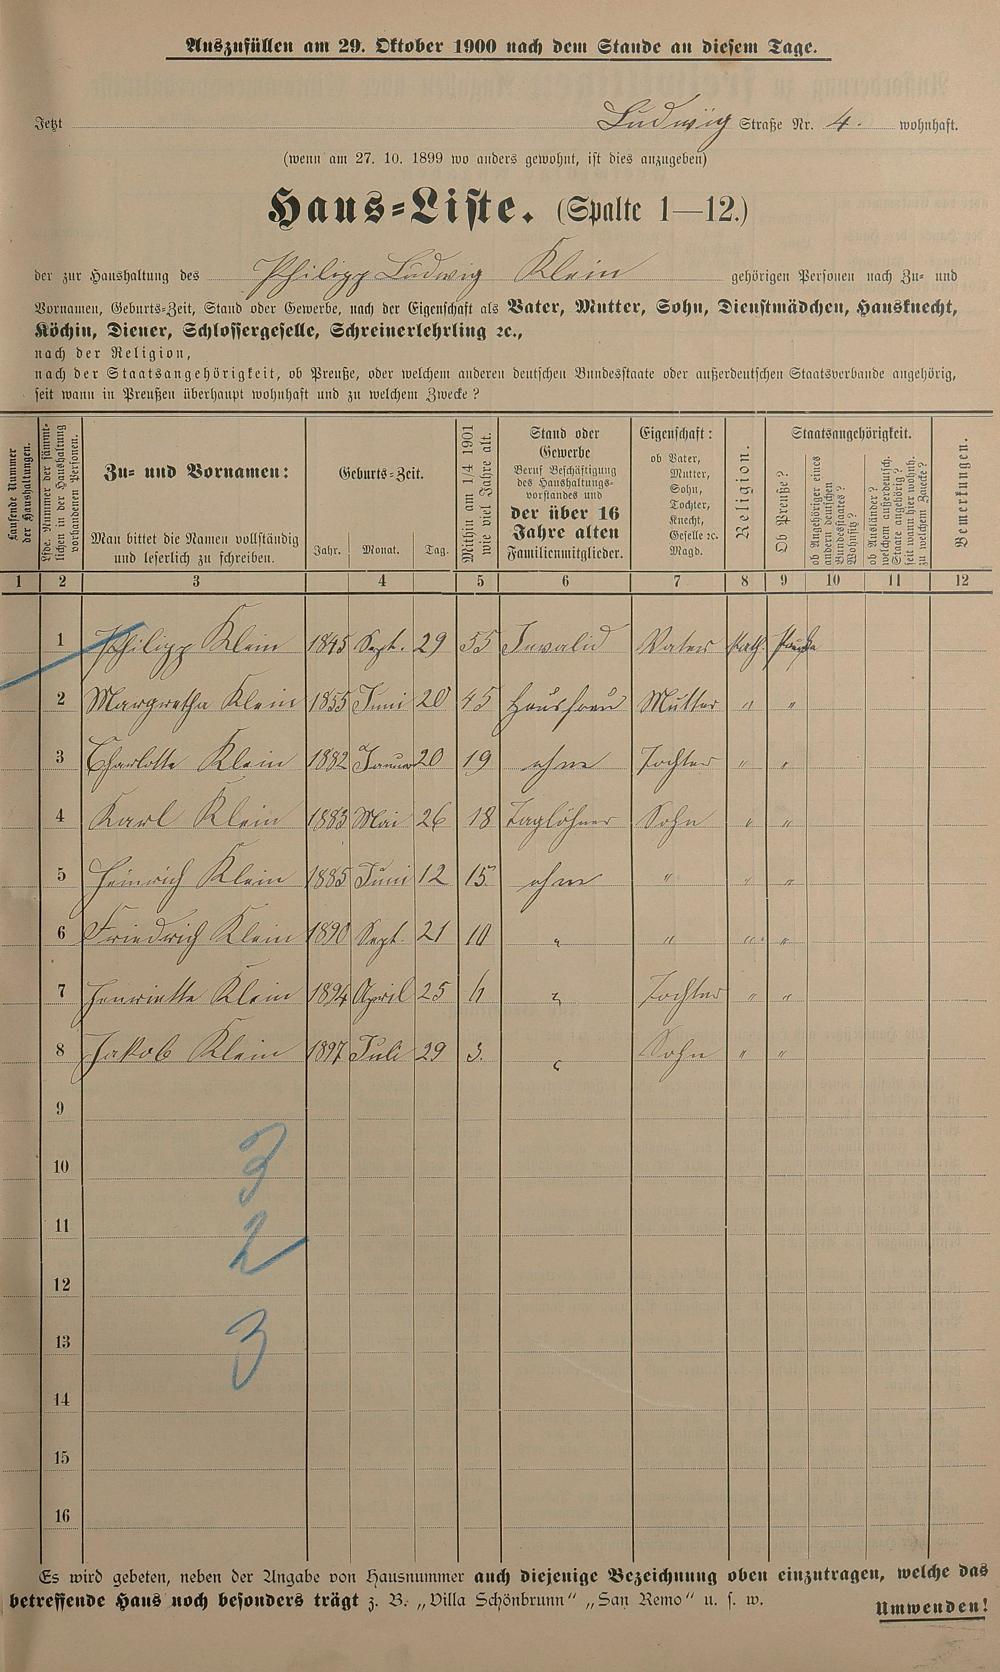 Auszufüllen am 29. Oktober 1900 nach dem Stande an diesem Tage.
Jetzt Ludwig Straße Nr. 4. wohnhaft.
(wenn am 27. 10. 1899 wo anders gewohnt, ist dies anzugeben)
Haus-Liste. (Spalte 1—12.)
der zur Haushaltung des Philipp Ludwig Klein gehörigen Personen nach Zu- und
Vornamen, Geburts-Zeit, Stand oder Gewerbe, nach der Eigenschaft als Vater, Mutter, Sohn, Dienstmädchen, Hausknecht,
Köchin, Diener, Schlossergeselle, Schreinerlehrling ꝛc.,
nach der Religion,
nach der Staatsangehörigkeit, ob Preuße, oder welchem anderen deutschen Bundesstaate oder außerdeutschen Staatsverbande angehörig,
seit wann in Preußen überhaupt wohnhaft und zu welchem Zwecke?
Laufende Nummer der Haushaltungen.
Lfde. Nummer der sämmtlichen in der Haushaltung vorhandenen Personen.
Zu- und Vornamen:
Man bittet die Namen vollständig
und leserlich zu schreiben.
Geburts-Zeit.
Jahr. Monat. Tag.
Mithin am 1/4 1901
wie viel Jahre alt.
Stand oder
Gewerbe
Beruf Beschäftigung
des Haushaltungs-
vorstandes und
der über 16
Jahre alten
Familienmitglieder.
Eigenschaft:
ob Vater,
Mutter,
Sohn,
Tochter,
Knecht,
Geselle ꝛc.
Magd.
Religion.
Staatsangehörigkeit.
Ob Preuße?
ob Angehöriger eines
andern deutschen
Bundesstaates?
Wohnsitz?
ob Ausländer?
welchem außerdeutsch.
Staate angehörig?
seit wann hier wohnh.
zu welchem Zwecke?
Bemerkungen.
1 2 3 4 5 6 7 8 9 10 11 12
1 Philipp Klein 1845 Sept. 29 55 Invalid Vater Kath. Preuße
2 Margretha Klein 1855 Juni 20 45 Hausfrau Mutter " "
3 Charlotte Klein 1882 Januar 20 19 ohne Tochter " "
4 Karl Klein 1883 Mai 26 18 Taglöhner Sohn " "
5 Heinrich Klein 1885 Juni 12 15 ohne " " "
6 Friedrich Klein 1890 Sept. 21 10 " " " "
7 Henriette Klein 1894 April 25 6 " Tochter " "
8 Jakob Klein 1897 Juli 29 3. " Sohn " "
9
10 3
11 2
12
13 3
14
15
16
Es wird gebeten, neben der Angabe von Hausnummer auch diejenige Bezeichnung oben einzutragen, welche das
betreffende Haus noch besonders trägt z. B. „Villa Schönbrunn“ „San Remo“ u. s. w.
Umwenden!